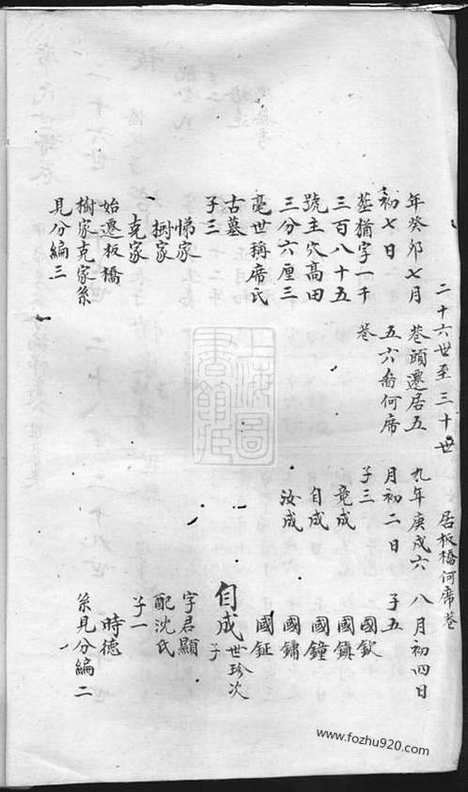 二十六世至三十世　居板橋何席巷
年癸卯七月
初七日
莖猶字一千
三百八十五
號主穴高田
三分六厘三
毫世稱席氏
古墓
子三
悌家
樹家
克家
始遷板橋
樹家克家系
見分編三
巷頭遷居五
五六爲何席
巷
九年庚戌六
月初二日
子三
竟成
自成
汝成
八月初四日
子五
國欽
國鎮
國鐘
國鏞
國鉦
自成世珍次子
字君顯
配沈氏
子一
時德
系見分編二
上海圖書館藏
www.fozhu920.com